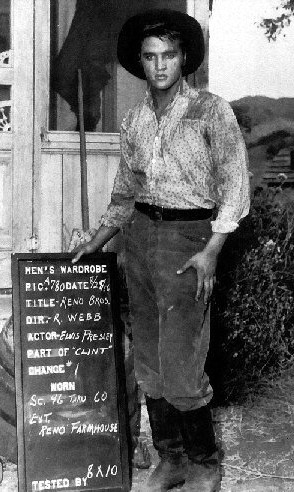 MEN'S WARDROBE
PIC. 3780 DATE 8/28/56
TITLE- RENO BROS.
DIR.- R. WEBB
ACTOR- ELVIS PRESLEY
PART OF "CLINT"
CHANGE # 1
WORN
SC. 46 THRU 60
EXT.
RENO FARMHOUSE
TESTED BY 8X10